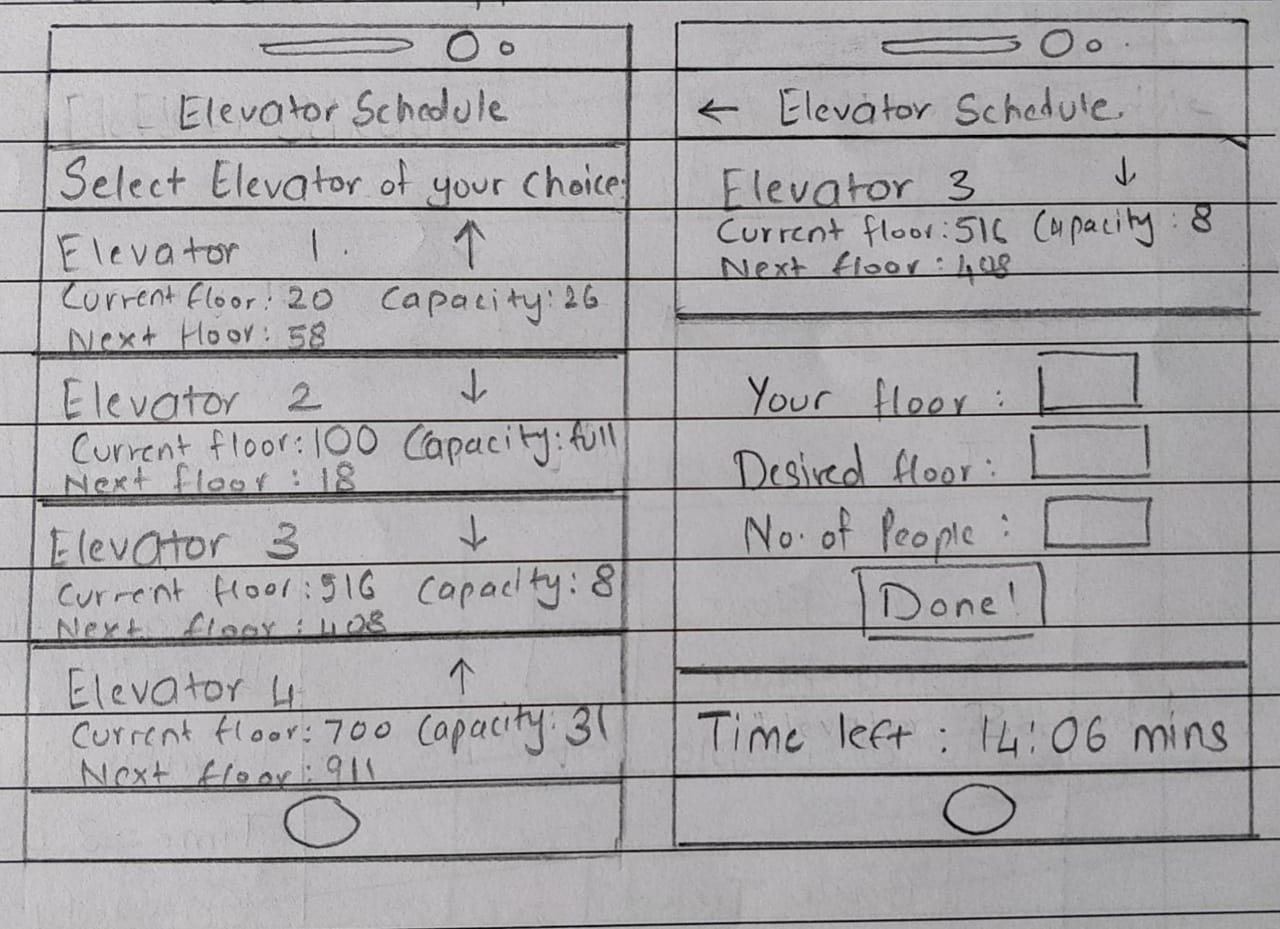 Elevator Schedule
Select Elevator of your choice
Elevator 1. ↑
Current floor: 20 Capacity: 26
Next floor: 58
Elevator 2 ↓
Current floor: 100 Capacity: full
Next floor : 18
Elevator 3 ↓
Current floor: 516 Capacity: 8
Next floor : 408
Elevator 4 ↑
Current floor: 700 Capacity: 31
Next floor : 911
← Elevator Schedule
Elevator 3 ↓
Current floor: 516 Capacity : 8
Next floor : 408
Your floor :
Desired floor :
No. of People :
Done!
Time left : 14:06 mins